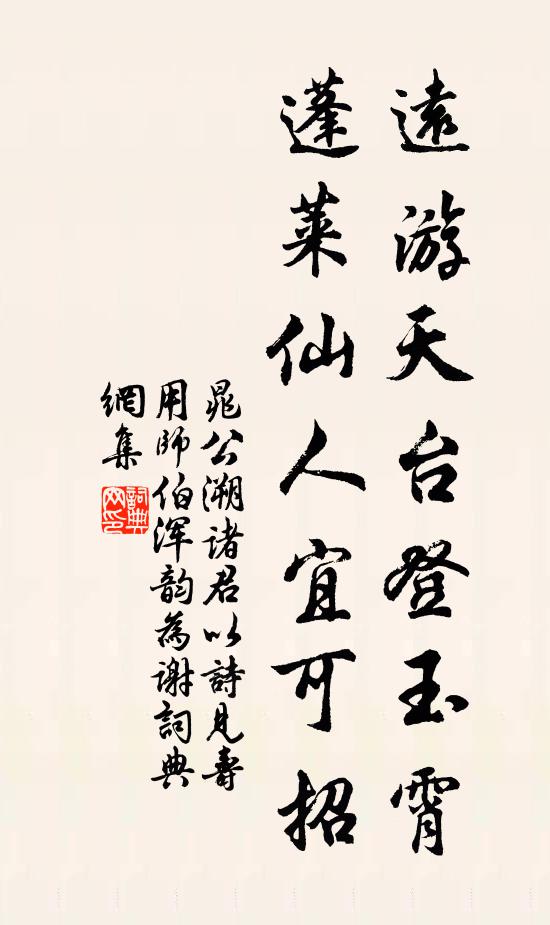 遠游天台登玉霄
蓬萊仙人宜可招
晁公溯諸君以詩見壽
用師伯渾韵為謝詞典
網集
詞典網印